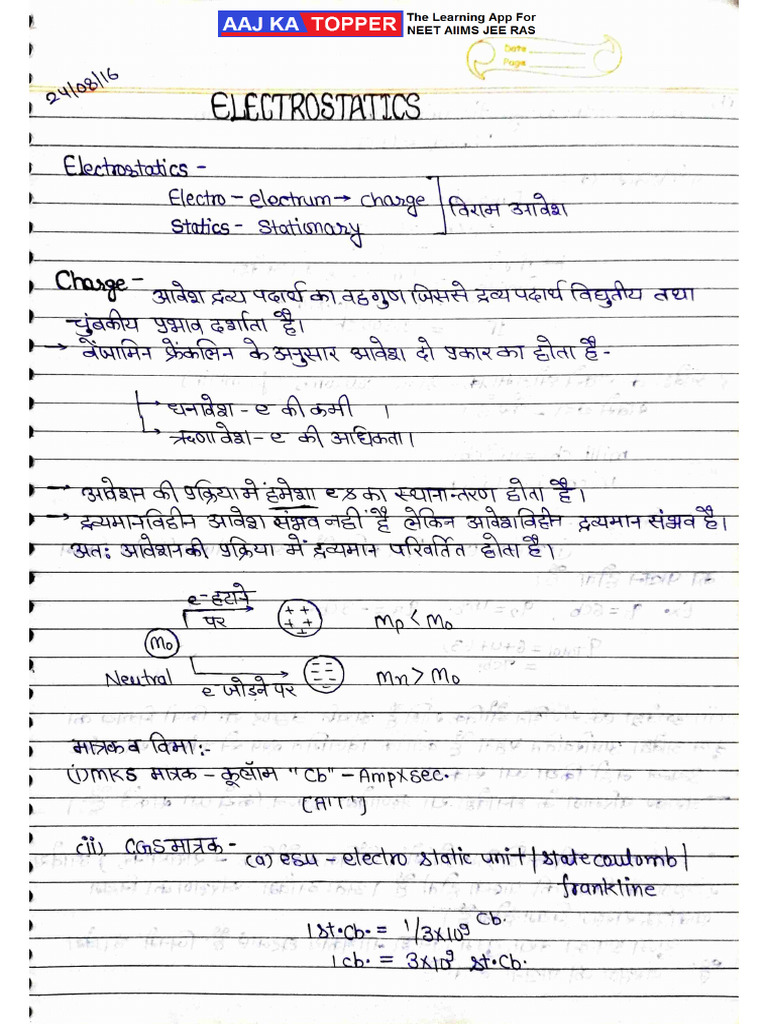 AAJ KA TOPPER The Learning App For
NEET AIIMS JEE RAS
Date
Page
24/08/16
ELECTROSTATICS
Electrostatics -
Electro - electrum → charge
Statics - Stationary
विराम आवेश
Charge - आवेश द्रव्य पदार्थ का वह गुण जिससे द्रव्य पदार्थ विद्युतीय तथा
चुंबकीय प्रभाव दर्शाता है।
→ बेंजामिन फ्रेंकलिन के अनुसार आवेश दो प्रकार का होता है -
धनावेश - e की कमी ।
ऋणावेश - e की अधिकता।
→ आवेशन की प्रक्रिया में हमेशा e का स्थानान्तरण होता है।
→ द्रव्यमानविहीन आवेश संभव नहीं है लेकिन आवेशविहीन द्रव्यमान संभव है।
अतः आवेशन की प्रक्रिया में द्रव्यमान परिवर्तित होता है।
e- हटाने
पर
++
+++
Mp < Mo
Mo
Neutral
e जोड़ने पर
Mn > Mo
मात्रक व विमा :-
(i) MKS मात्रक - कूलॉम "Cb" - Amp×sec.
[A'T']
(ii) CGS मात्रक -
(a) esu - electro static unit / statecoulomb /
frankline
1 st.Cb. = 1/3×10⁹ Cb.
1 cb. = 3×10⁹ st.Cb.